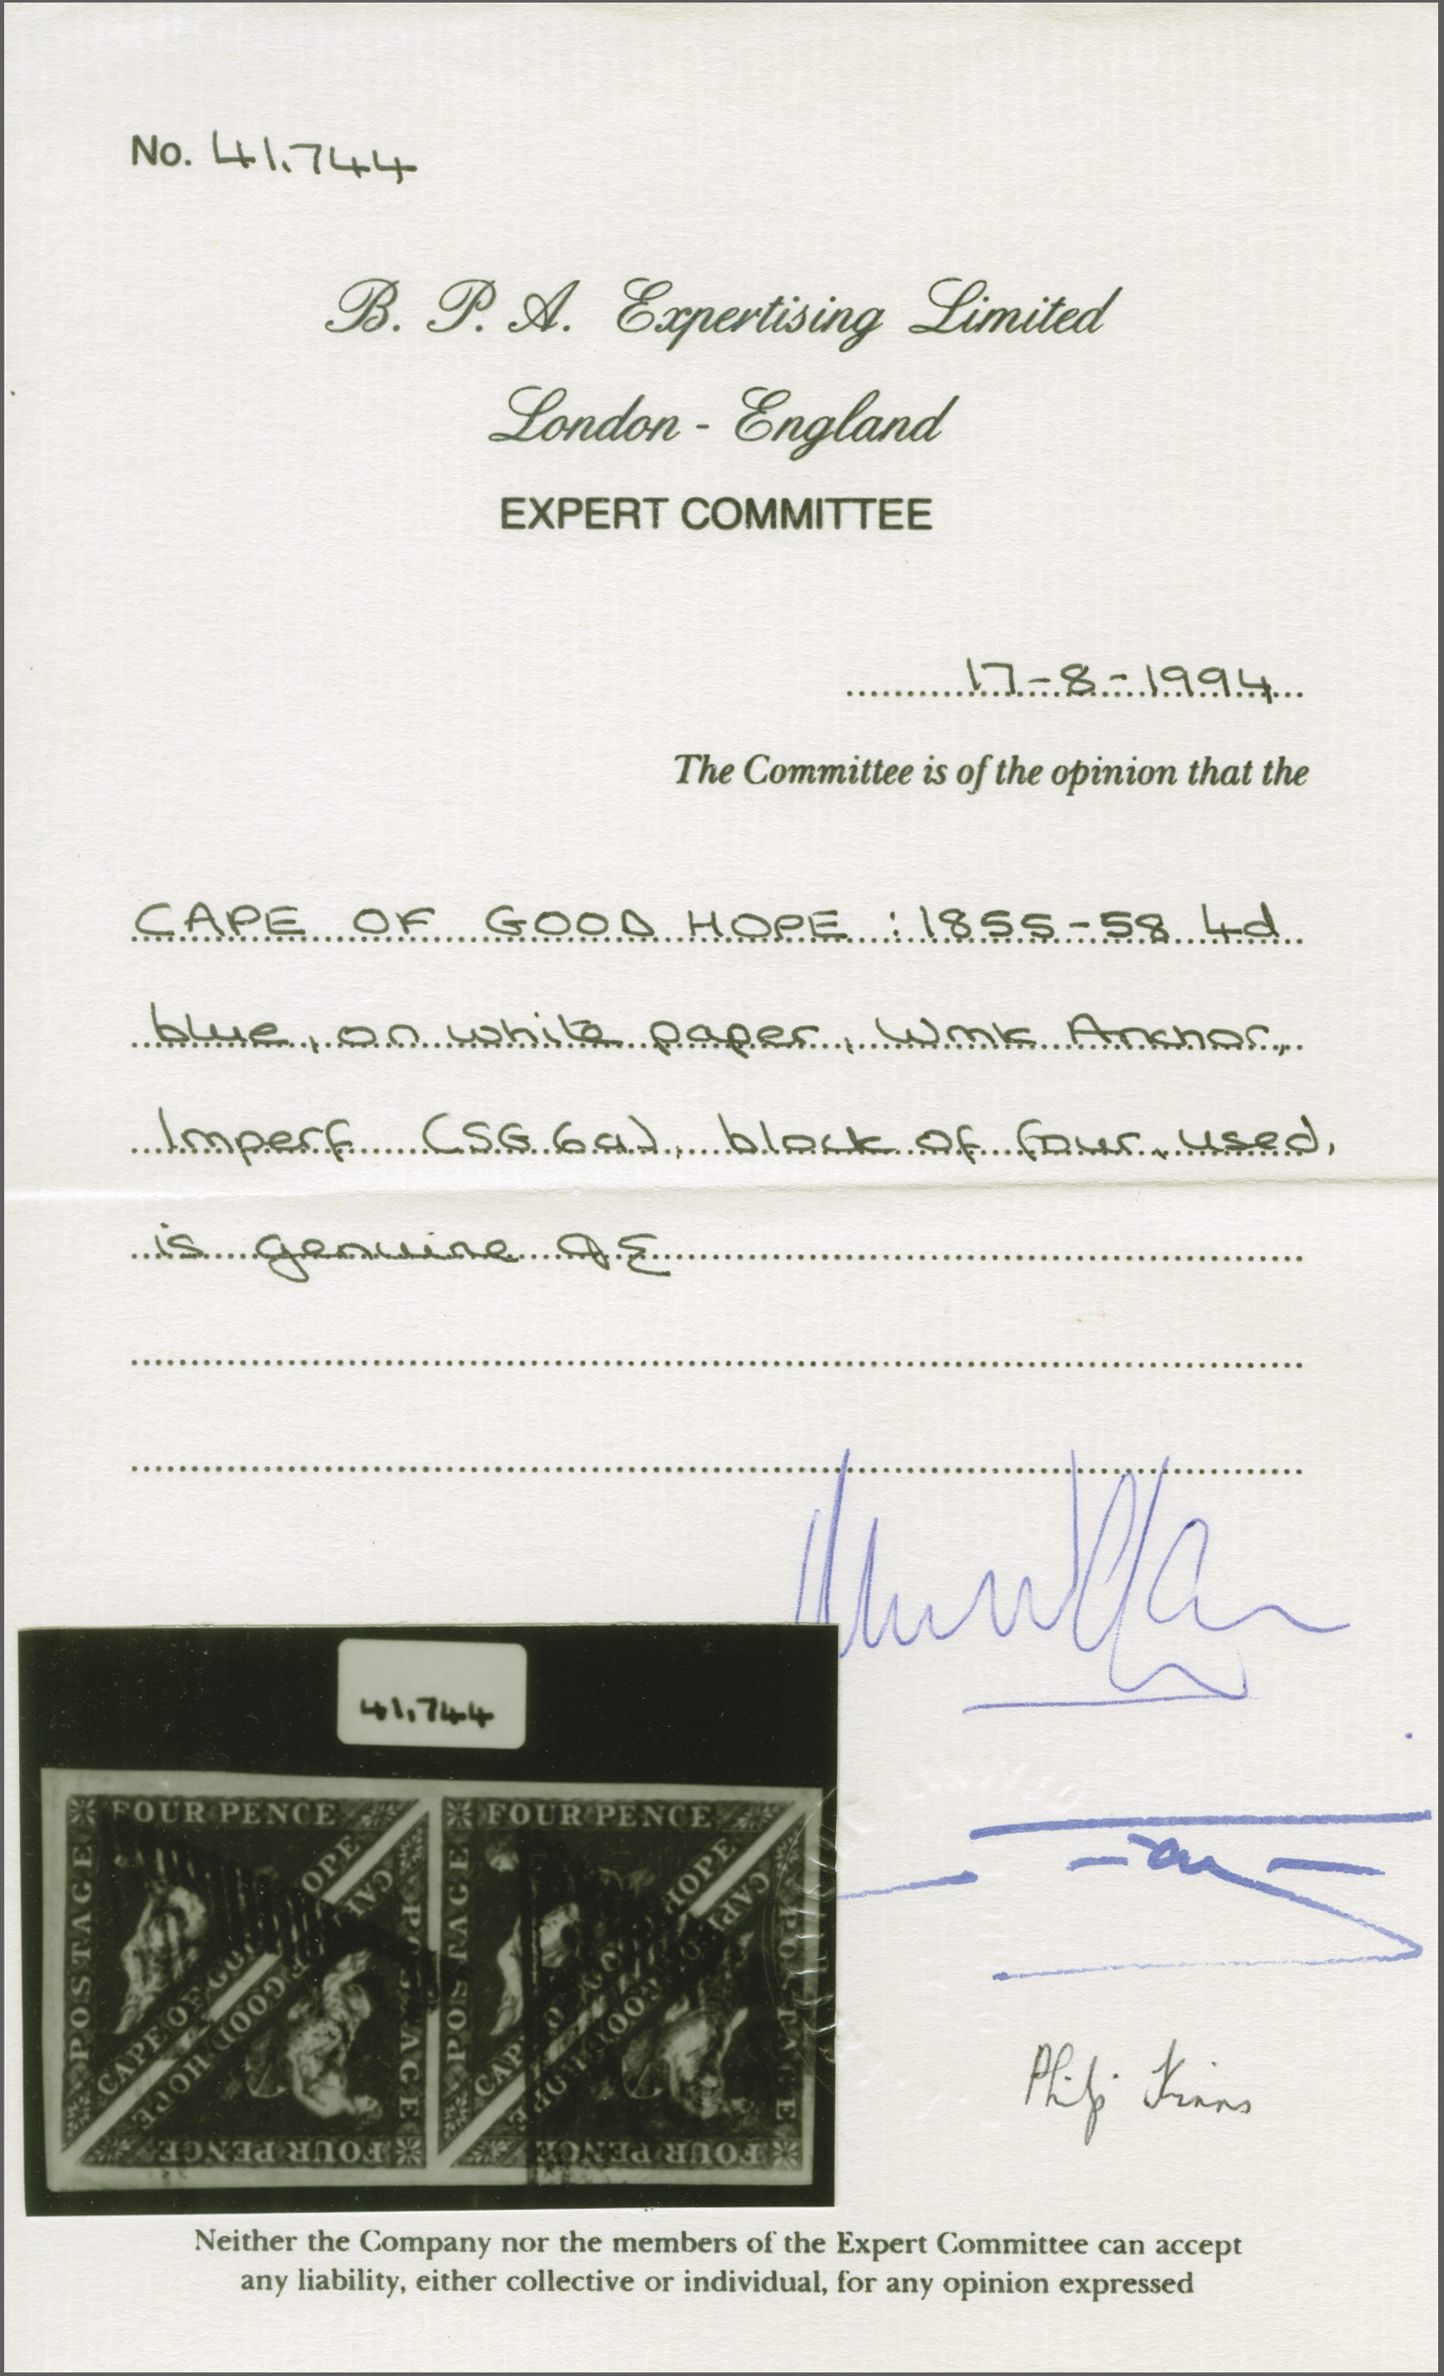 No. 41,744
B. P. A. Expertising Limited
London - England
EXPERT COMMITTEE
17-8-1994
The Committee is of the opinion that the
CAPE OF GOOD HOPE : 1855-58 4d
blue, on white paper, Wmk Anchor,
Imperf (SG 6a), block of four, used,
is genuine
41,744
FOUR PENCE
POSTAGE
CAPE OF GOOD HOPE
CAPE OF GOOD HOPE
POSTAGE
FOUR PENCE
FOUR PENCE
POSTAGE
CAPE OF GOOD HOPE
CAPE OF GOOD HOPE
POSTAGE
FOUR PENCE
Philip
Neither the Company nor the members of the Expert Committee can accept
any liability, either collective or individual, for any opinion expressed